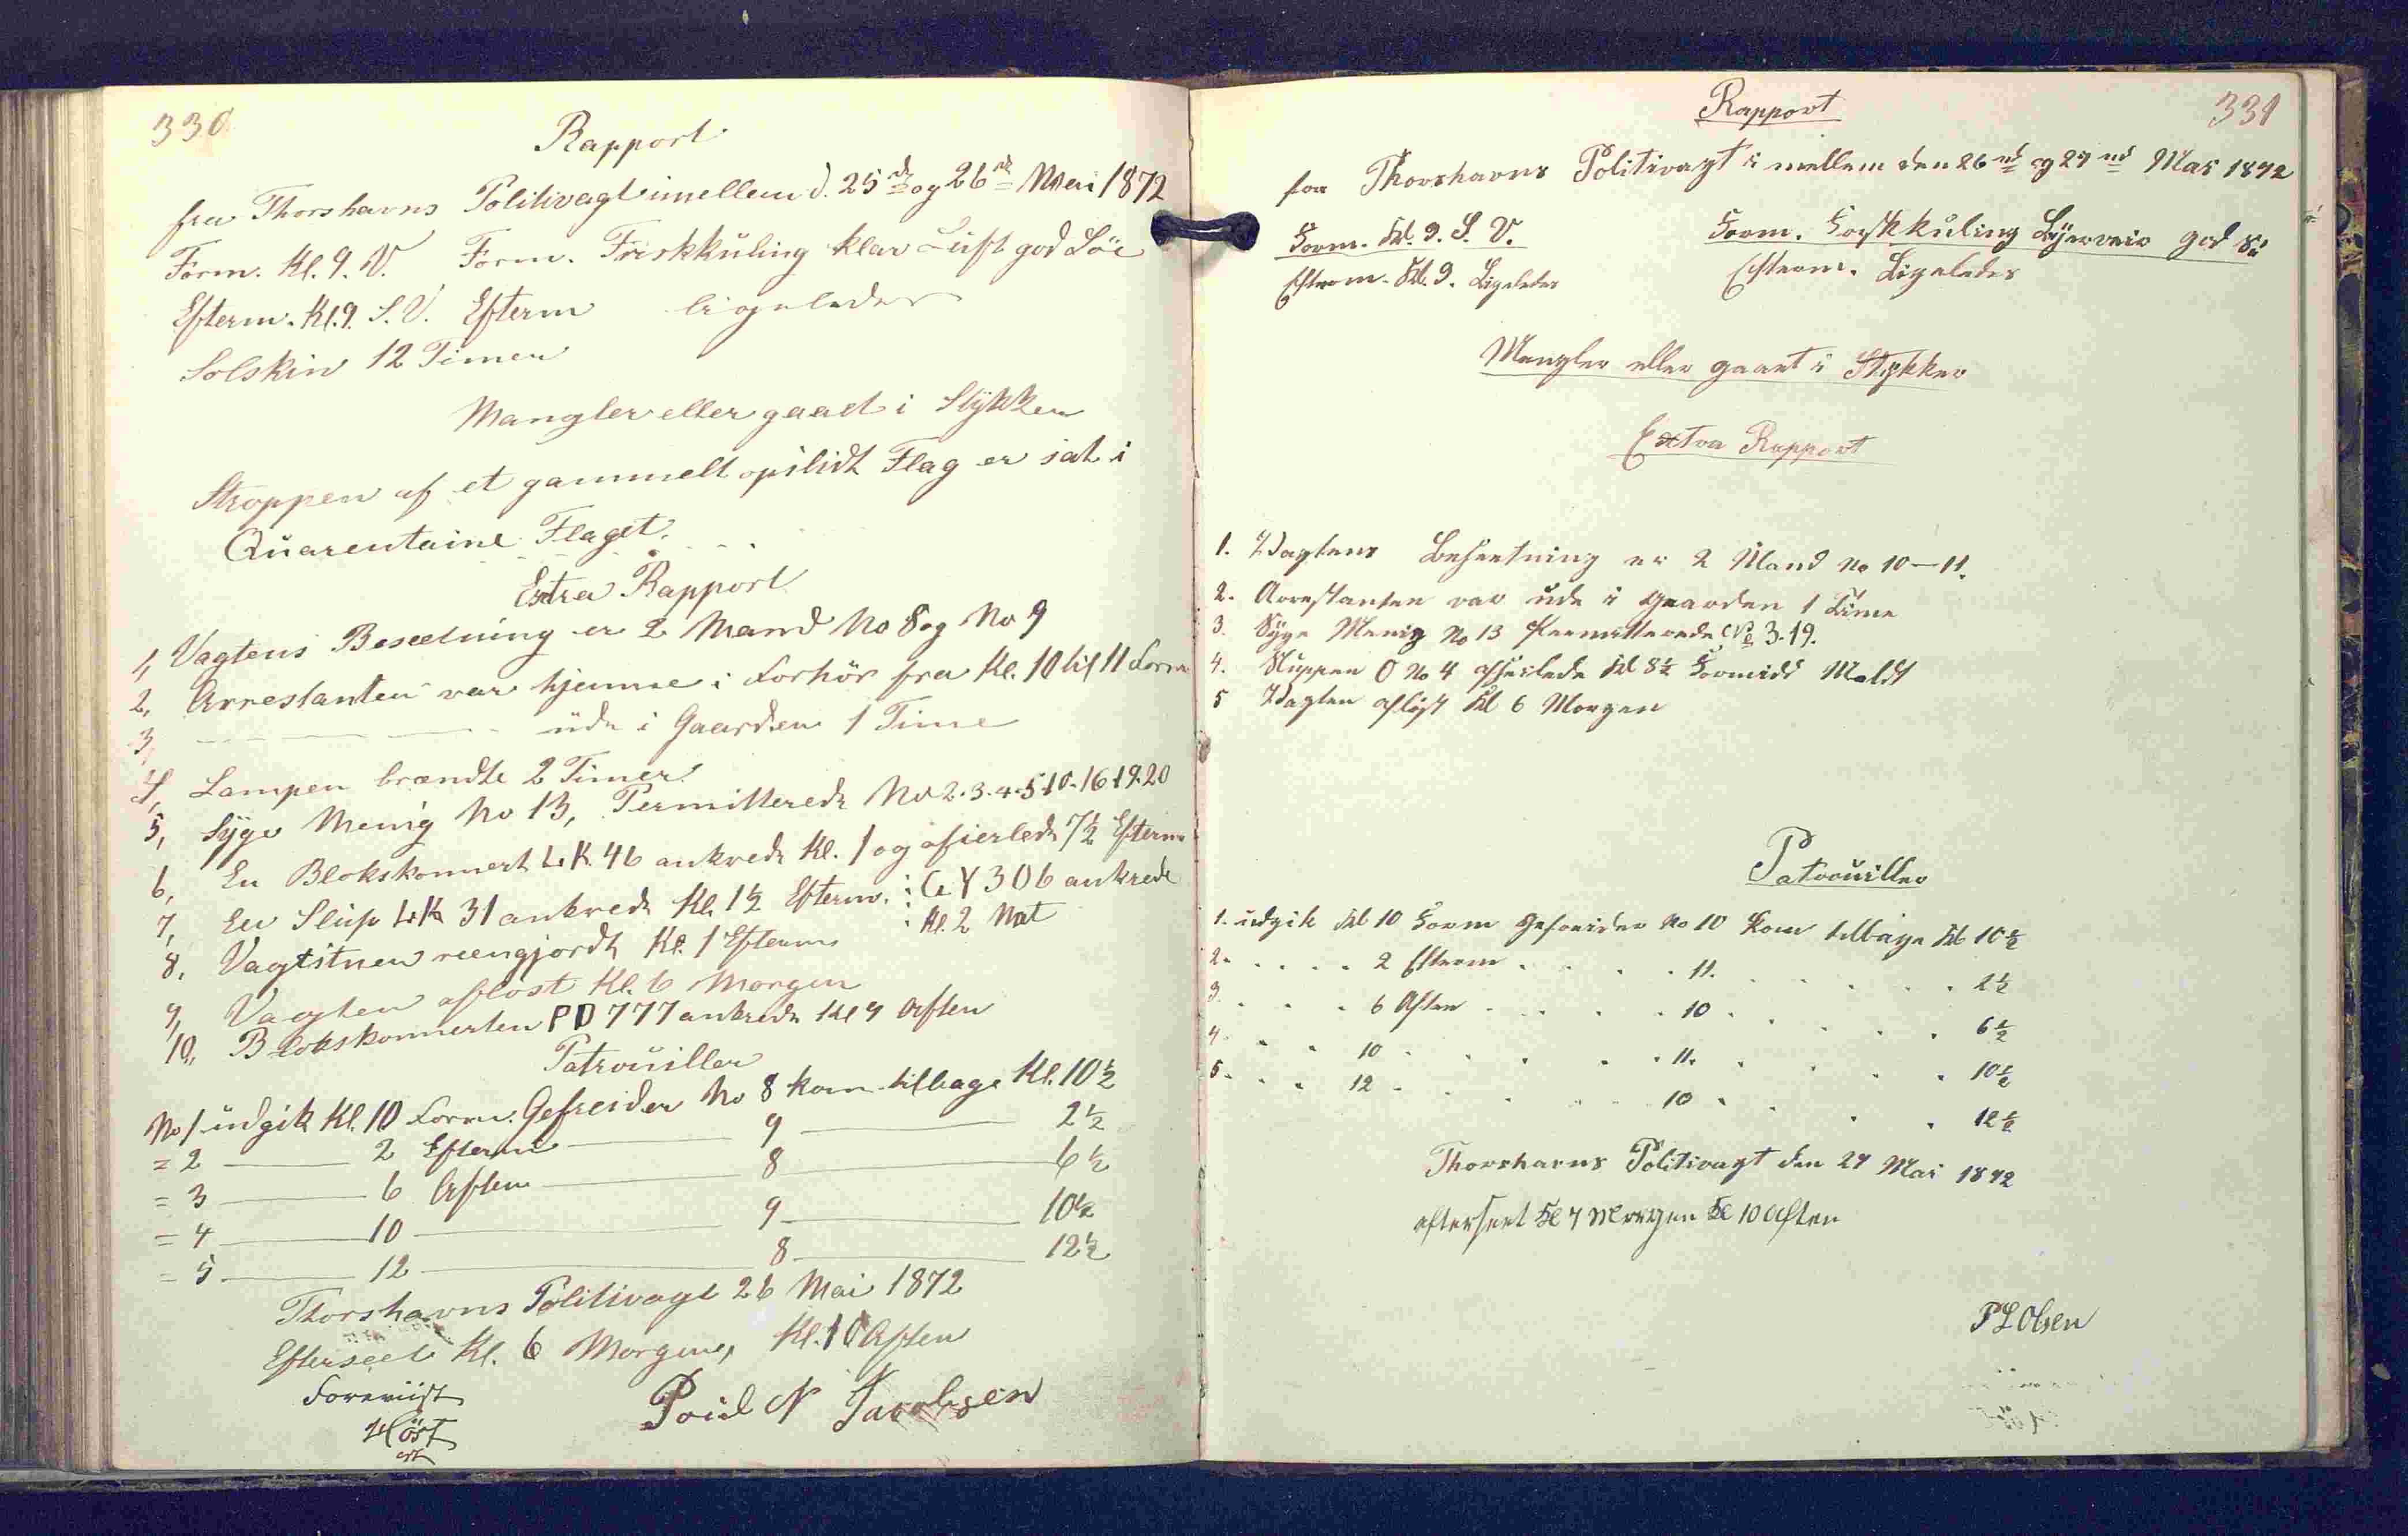 330
Rapport
fra Thorshavns Politivagt imellem d. 25de og 26de Mai 1872
Form. Kl. 9. V. Form. Friskkuling klar Luft god Söe
Efterm. Kl. 9. S.V. Efterm ligeledes
Solskin 12 Timer
Mangler eller gaaet i Stykker
Stroppen af et gammelt opslidt Flag er sat i
Quarentaine Flaget.
Extra Rapport
1, Vagtens Besætning er 2 Mand No 8 og No 9
2, Arrestanten var hjemme i Forhör fra Kl. 10 til 11 Form
3, — — — ude i Gaarden 1 Time
4, Lampen brændte 2 Timer
5, Syge Menig No 13, Permitterede No 2.3.4.5.10.16.19.20
6, En Blokskonnert L.K. 46 ankrede Kl. 1 og afseilede 7½ Efterm
7, En Slup L.K. 31 ankrede Kl. 1½ Efterm. : G.Y 306 ankrede
8, Vagtstuen reengjordt Kl. 1 Efterm : Kl. 2 Nat
9, Vagten aflöst Kl. 6 Morgen
10, Blokskonnerten PD 777 ankrede Kl 9 Aften
Patrouiller
No 1 udgik Kl. 10 Form. Gefreider No 8 kom tilbage Kl. 10½
= 2 — 2 Efterm — 9 — 2½
= 3 — 6 Aften — 8 — 6½
= 4 — 10 — 9 — 10½
= 5 — 12 — 8 — 12½
Thorshavns Politivagt 26 Mai 1872
Efterseet Kl. 6 Morgen, Kl. 10 Aften
Foreviist
Höst
Poul N Jacobsen
331
Rapport
fra Thorshavns Politivagt i mellem den 26nd og 27nd Mai 1872
Form. Kl. 9. S. V. Form. Foriskkuling Byerveir god Sö
Efterm. Kl. 9. Ligeledes Efterm. Ligeledes
Mangler eller gaaet i Stykker
Extra Rapport
1. Vagtens Besætning er 2 Mand No 10–11.
2. Arrestanten var ude i Gaarden 1 Time
3. Syge Menig No 13 Permitterede No 3.19.
4. Sluppen O No 4 afseilede Kl 8½ Formidd Meldt
5 Vagten aflöst Kl 6 Morgen
Patrouiller
1. udgik Kl 10 Form Gefreider No 10 Kom tilbage Kl 10½
2. . . . . 2 Efterm . . . . 11. . . . . . 2½
3. . . . 6 Aften . . . . 10 . . . . . 6½
4. . . 10 . . . . . 11. . . . . . 10½
5. . . 12 . . . . . 10 . . . . . 12½
Thorshavns Politivagt den 27 Mai 1872
efterseet Kl 7 Morgen Kl 10 Aften
P L Olsen